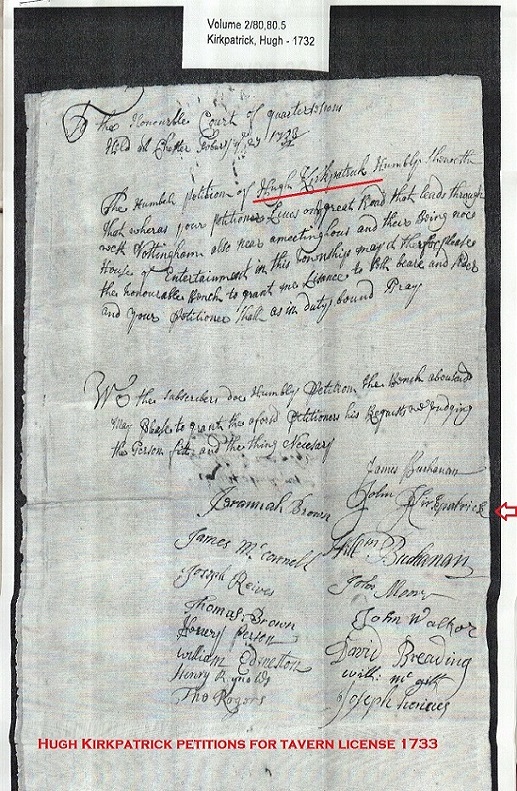 Volume 2/80,80.5
Kirkpatrick, Hugh - 1732
To the Honourable Court of quartersessions
Held at Chester 1733
The Humble petition of Hugh Kirkpatrick Humbly Sheweth
that wheras your petitioner Lives on great Road that leads through
Nottingham also near a meetinghous and there Being none
House of Entertainment in this Township may it therfor please
the honourable Bench to grant me Lisance to sell beare and sider
and your Petitioner shall as in duty bound Pray
We the subscribers doe Humbly Petition the Bench
May Please to grant the aforsd Petitioners his Request Judging
the Person fitt and the thing Necesary
James Buchanan
Jeremiah Brown John Kirkpatrick
James McConnell Buchanan
Joseph Reives John
Thomas Brown John Walker
person David Breading
william Edmeston
Henry Reynolds Joseph
Tho Rogers
HUGH KIRKPATRICK PETITIONS FOR TAVERN LICENSE 1733